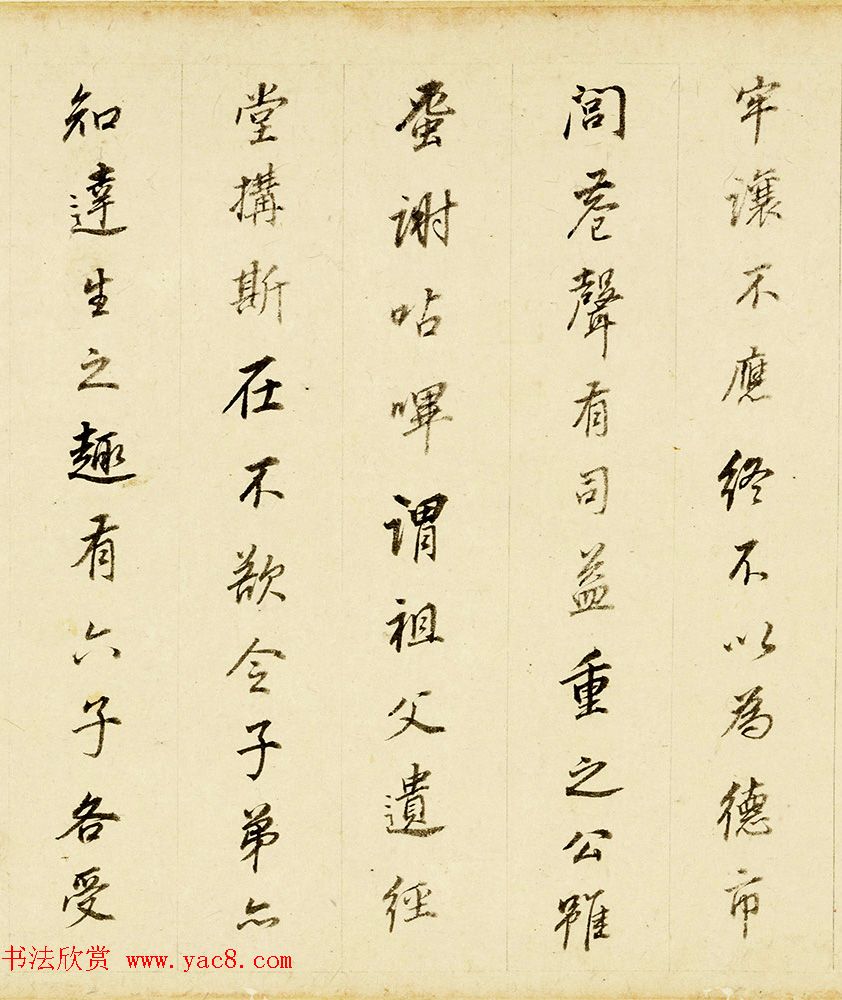 牢讓不應終不以為德市
閭巷聲有司益重之公雖
蚤謝呫嗶謂祖父遺經
堂搆斯在不欲令子弟亦
知達生之趣有六子各受
书法欣赏 www.yac8.com